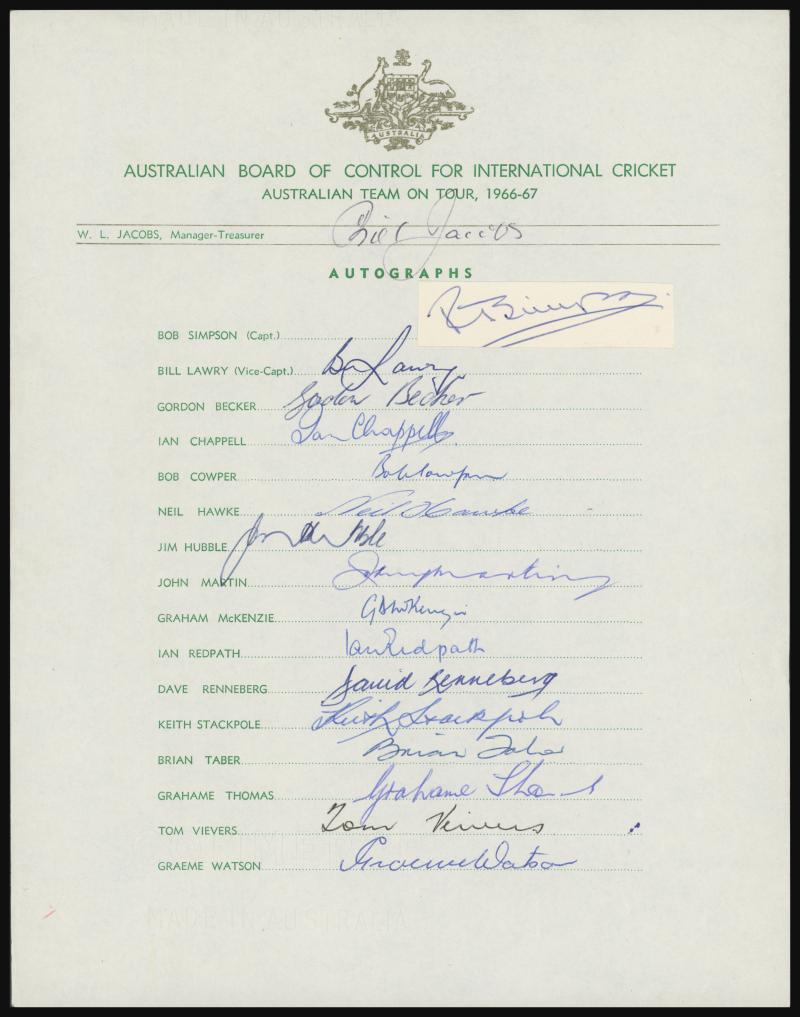 MADE IN AUSTRALIA
AUSTRALIA
AUSTRALIAN BOARD OF CONTROL FOR INTERNATIONAL CRICKET
AUSTRALIAN TEAM ON TOUR, 1966-67
W. L. JACOBS, Manager-Treasurer Bill Jacobs
AUTOGRAPHS
BOB SIMPSON (Capt.) R B Simpson
BILL LAWRY (Vice-Capt.) Bill Lawry
GORDON BECKER Gordon Becker
IAN CHAPPELL Ian Chappell
BOB COWPER Bob Cowper
NEIL HAWKE Neil Hawke
JIM HUBBLE Jim Hubble
JOHN MARTIN Johnny Martin
GRAHAM McKENZIE G D McKenzie
IAN REDPATH Ian Redpath
DAVE RENNEBERG David Renneberg
KEITH STACKPOLE Keith Stackpole
BRIAN TABER Brian Taber
GRAHAME THOMAS Grahame Thomas
TOM VIEVERS Tom Veivers
GRAEME WATSON Graeme Watson
MADE IN AUSTRALIA